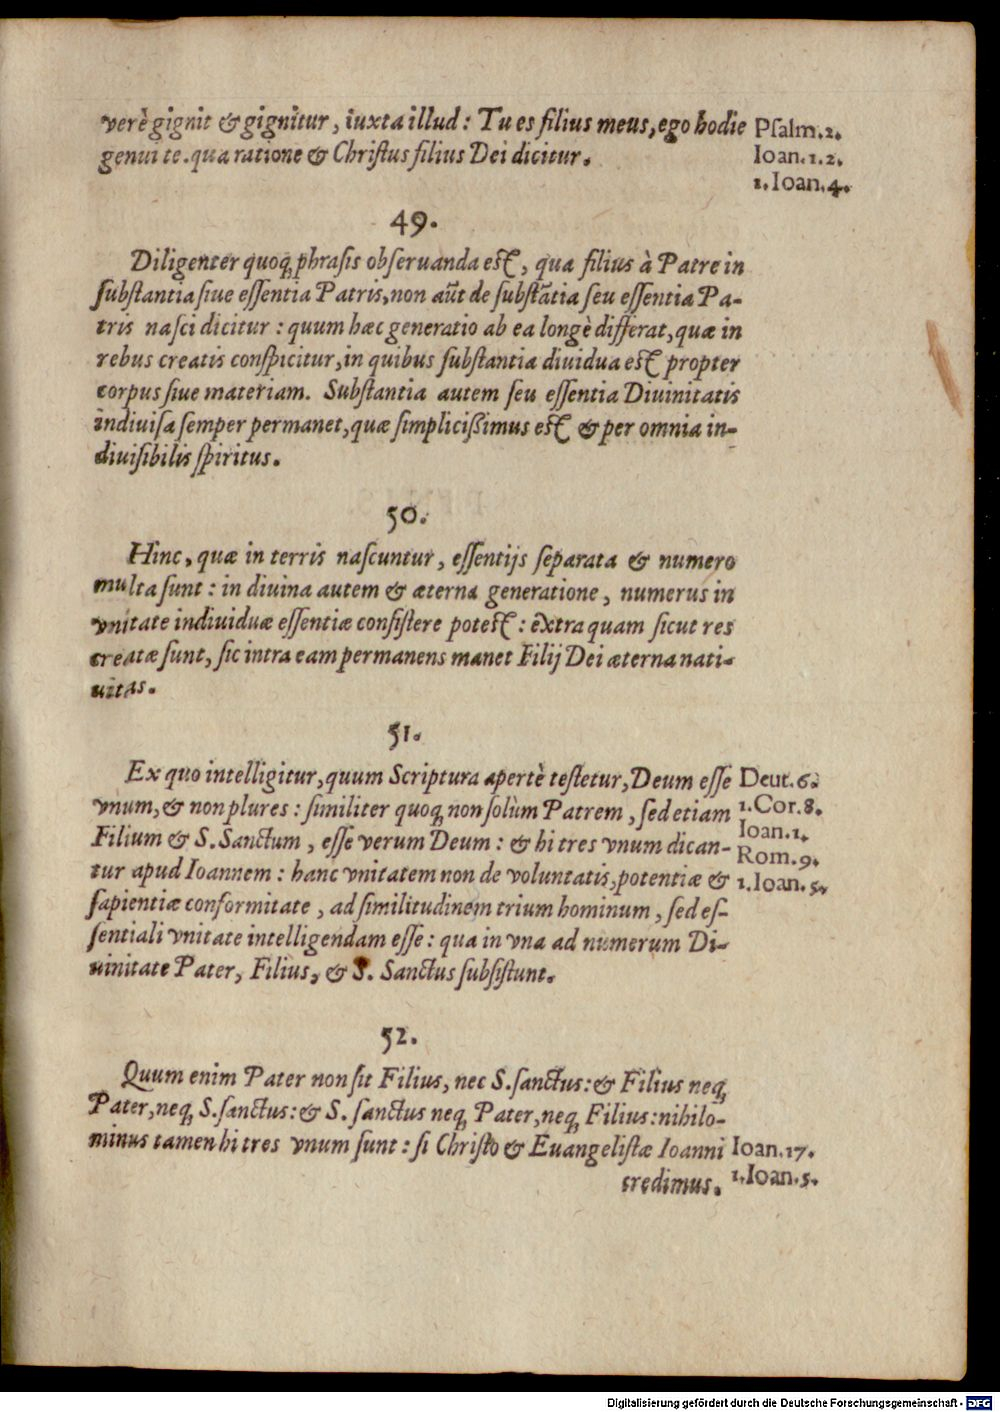 verè gignit & gignitur, iuxta illud: Tu es filius meus, ego hodie
genui te. qua ratione & Christus filius Dei dicitur.
Psalm. 2.
Ioan. 1. 2.
1. Ioan. 4.
49.
Diligenter quoq; phrasis obseruanda est, qua filius à Patre in
substantia siue essentia Patris, non aũt de substãtia seu essentia Pa-
tris nasci dicitur: quum hæc generatio ab ea longè differat, quæ in
rebus creatis conspicitur, in quibus substantia diuidua est propter
corpus siue materiam. Substantia autem seu essentia Diuinitatis
indiuisa semper permanet, quæ simplicißimus est & per omnia in-
diuisibilis spiritus.
50.
Hinc, quæ in terris nascuntur, essentijs separata & numero
multa sunt: in diuina autem & æterna generatione, numerus in
vnitate indiuiduæ essentiæ consistere potest: extra quam sicut res
creatæ sunt, sic intra eam permanens manet Filij Dei æterna nati-
uitas.
51.
Ex quo intelligitur, quum Scriptura apertè testetur, Deum esse
vnum, & non plures: similiter quoq; non solùm Patrem, sed etiam
Filium & S. Sanctum, esse verum Deum: & hi tres vnum dican-
tur apud Ioannem: hanc vnitatem non de voluntatis, potentiæ &
sapientiæ conformitate, ad similitudinem trium hominum, sed es-
sentiali vnitate intelligendam esse: qua in vna ad numerum Di-
uinitate Pater, Filius, & S. Sanctus subsistunt.
Deut. 6.
1. Cor. 8.
Ioan. 1.
Rom. 9.
1. Ioan. 5.
52.
Quum enim Pater non sit Filius, nec S. sanctus: & Filius neq;
Pater, neq; S. sanctus: & S. sanctus neq; Pater, neq; Filius: nihilo-
minus tamen hi tres vnum sunt: si Christo & Euangelistæ Ioanni
credimus.
Ioan. 17.
1. Ioan. 5.
Digitalisierung gefördert durch die Deutsche Forschungsgemeinschaft - DFG